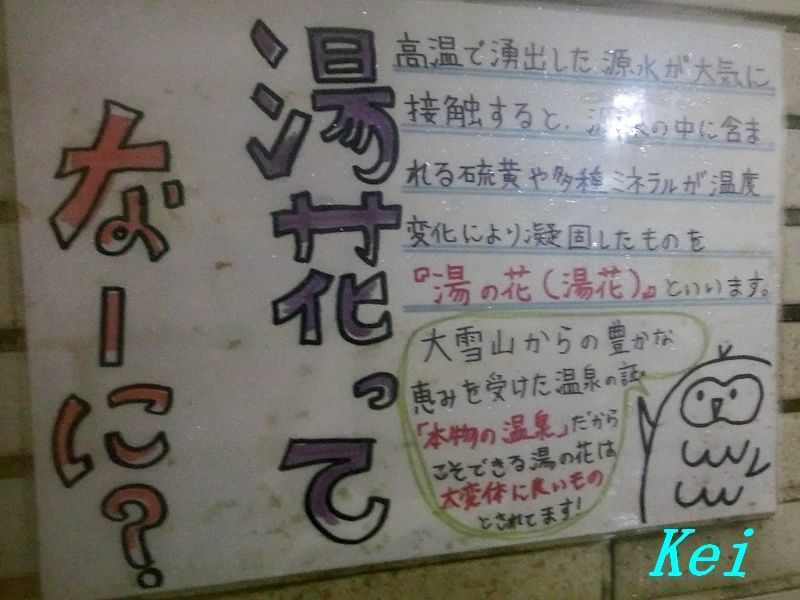 湯花って
なーに?
高温で湧出した源水が大気に
接触すると、源水の中に含ま
れる硫黄や多種ミネラルが温度
変化により凝固したものを
『湯の花(湯花)』といいます。
大雪山からの豊かな
恵みを受けた温泉の証。
「本物の温泉」だから
こそできる湯の花は
大変体に良いもの
とされてます!
Kei